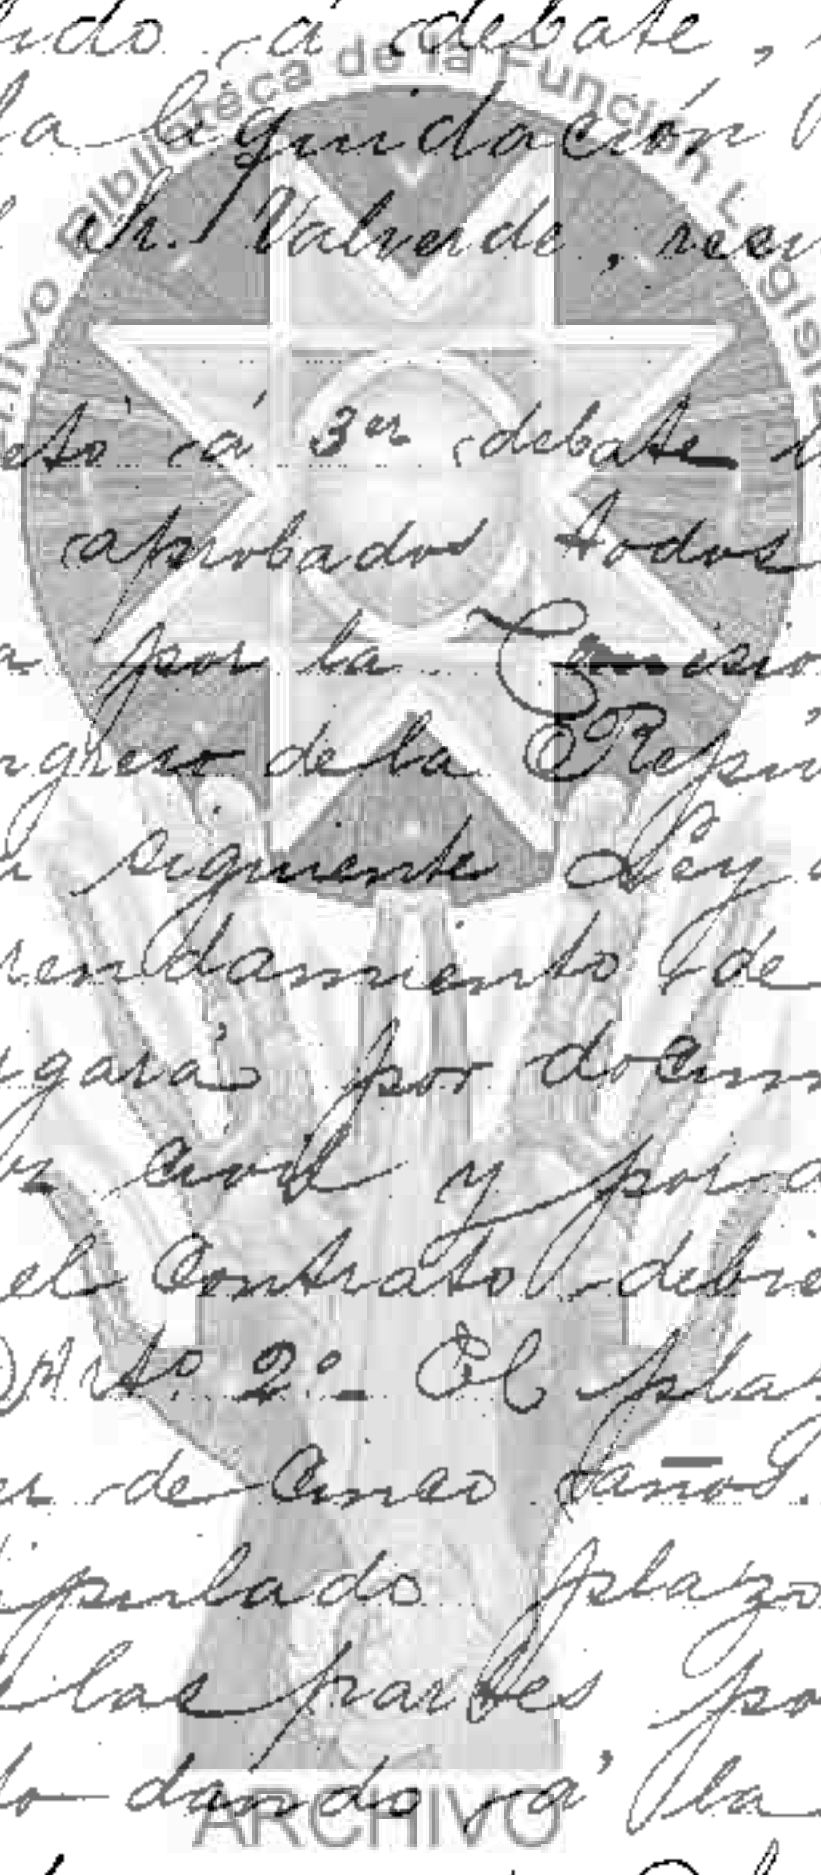 ido á debate,
la liquidación
Sr. Valverde, recu
Archivo Biblioteca de la Función Legisla
etó á 3er debate
aprobados todos
a por la Comisio
ngreso de la Repú
a siguiente Ley
rendamiento de
gará por docum
or civil y por
el contrato debie
Arto. 2º- El plaz
er de cinco años.
ipulado plazo
e las partes, po
do dando á la
ARCHIVO